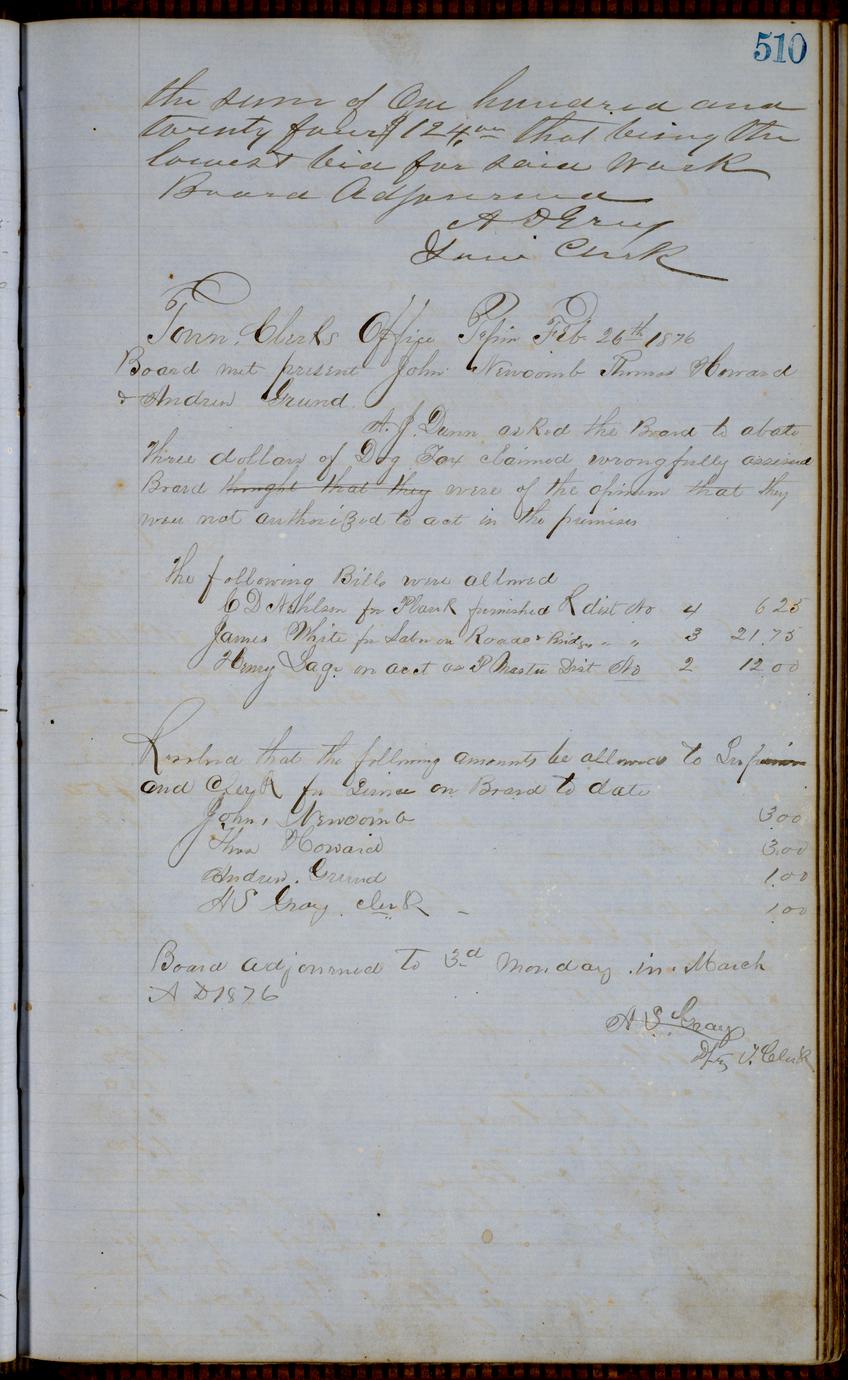 510
the sum of One hundred and
twenty four $124.00 that being the
lowest bid for said work
Board Adjourned
A D Gray
Town Clerk
Town Clerks Office Pepin Feb. 26th 1876
Board met present John Newcomb Thomas Howard
& Andrew Grund
A. J. Dunn asked the Board to abate
three dollars of Dog Tax claimed wrongfully assessed
Board thought that they were of the opinion that they
were not authorized to act in the premises
The following Bills were allowed
C D for Plank furnished R dist No 4 6 25
James White for Labor on Roads & Bridges " " 3 21.75
Henry Lage on acct as P Master Dist No 2 12 00
Resolved that the following amounts be allowed to
and Clerk for Service on Board to date
John, Newcomb 3 00
Thos Howard 3.00
Andrew. Grund 1.00
H S Gray. clerk - 1 00
Board adjourned to 3d Monday in March
A D 1876
H S Gray
Dpty T. Clerk